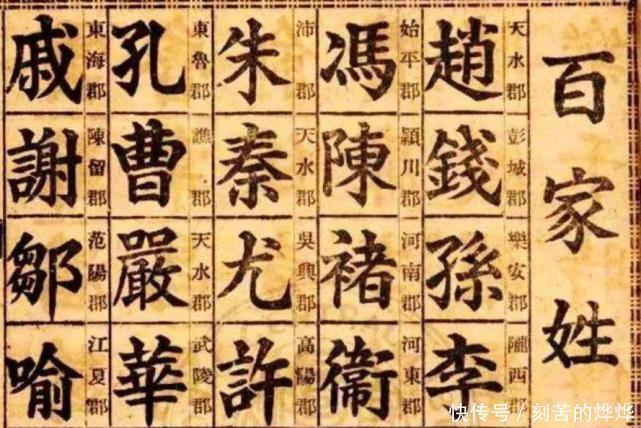 百家姓
天水郡 彭城郡 樂安郡 隴西郡
趙錢孫李
始平郡 潁川郡 河南郡 河東郡
馮陳褚衞
沛郡 天水郡 吳興郡 高陽郡
朱秦尤許
東魯郡 譙郡 天水郡 武陵郡
孔曹嚴華
東海郡 陳留郡 范陽郡 江夏郡
戚謝鄒喻
快传号/刻苦的烨烨